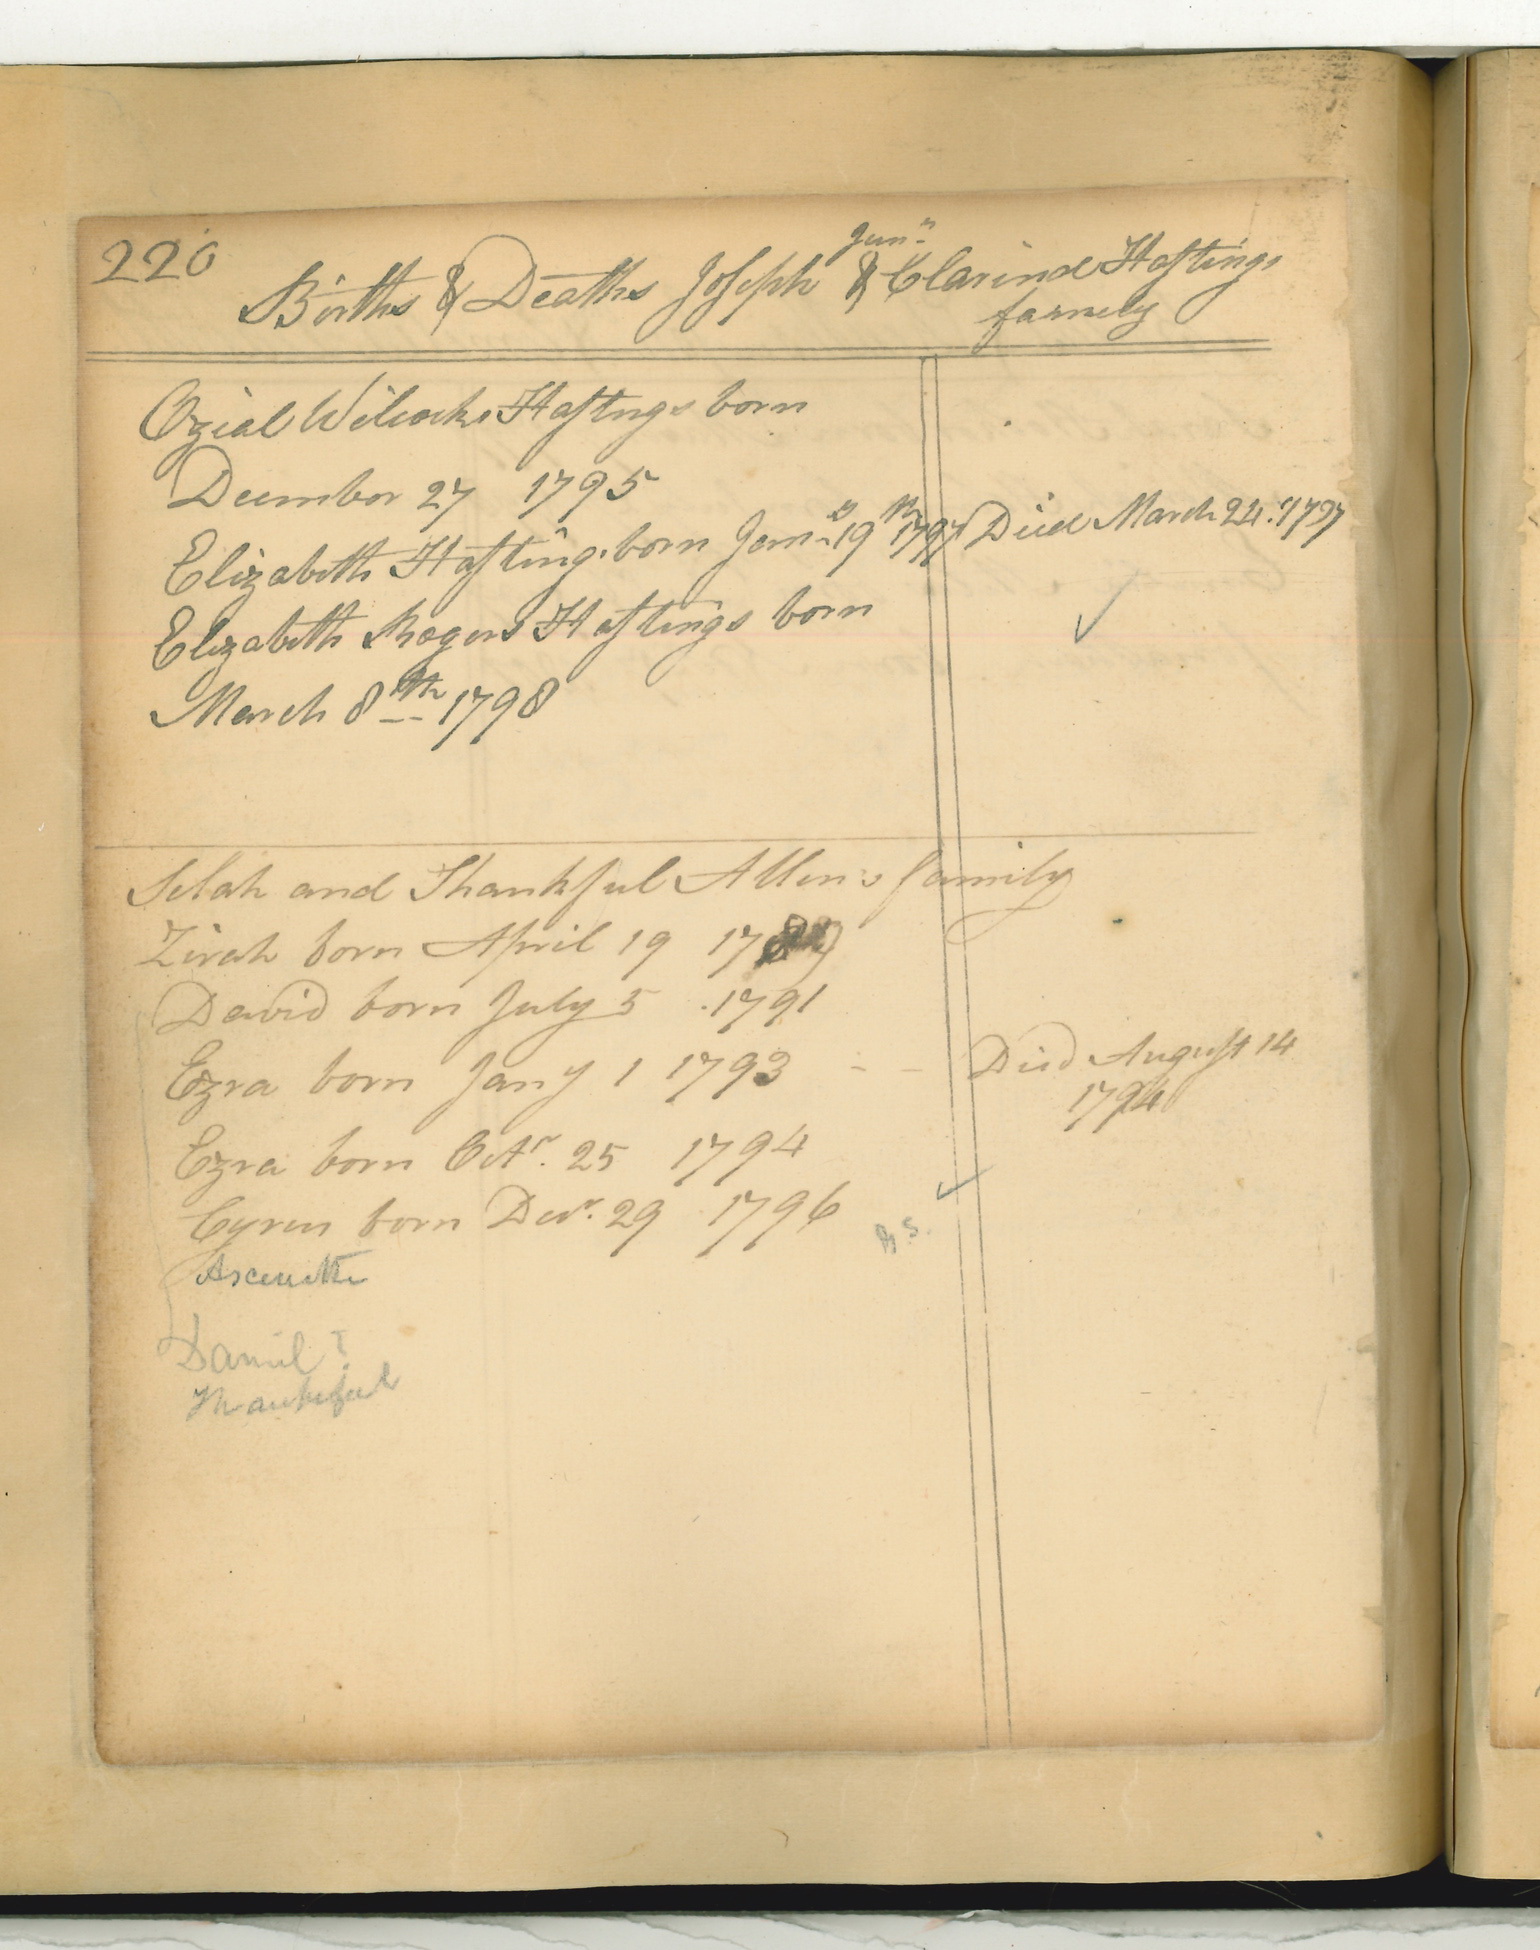 220
Births & Deaths Joseph Junr & Clarind Hastings
famely
Ozial Wilcocks Hastngs born
December 27 1795
Elizabeth Hasting born Jany 19th 1797 Died March 24. 1797
Elizabeth Rogers Hastings born
March 8th 1798
Selah and Thankful Allen's family
Zirah born April 19 1789
David born July 5 1791
Ezra born Jany 1 1793 - - Died August 14
1794
Ezra born Octr. 25 1794
Cyrus born Decr. 29 1796
Asenath
Daniel ?
Thankful